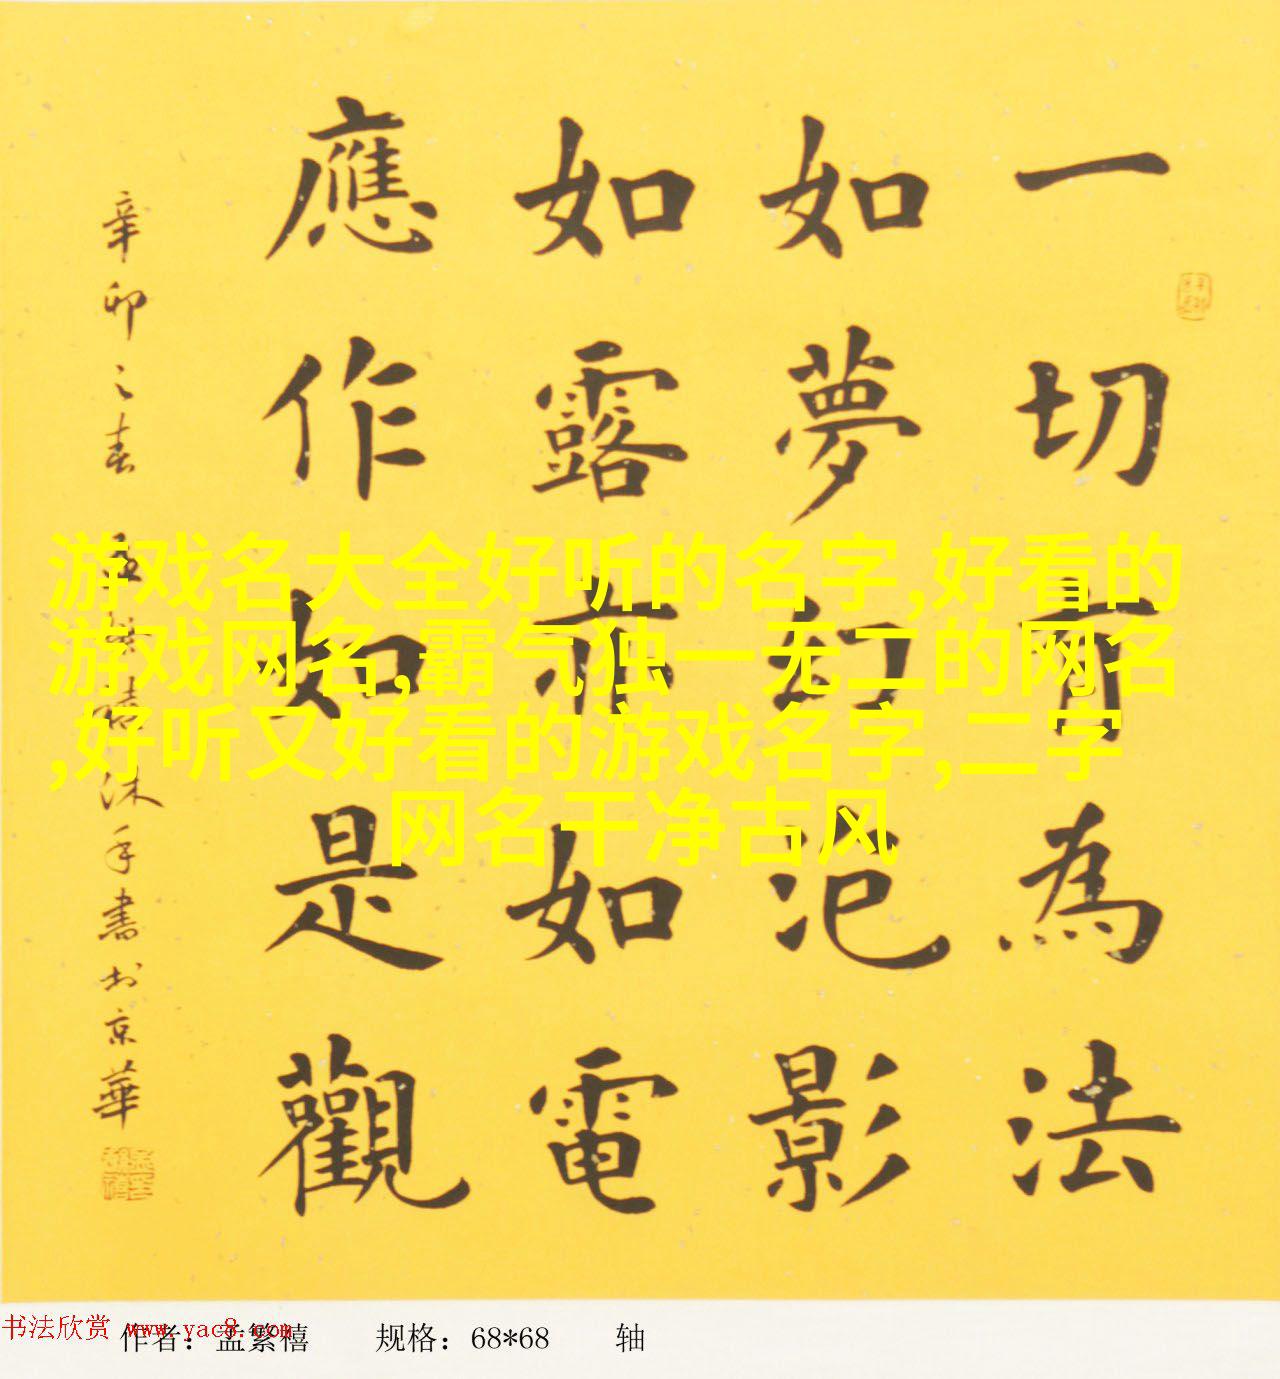 一切有為法
如夢幻泡影
如露亦如電
應作如是觀
辛卯之春 孟繁禧沐手書於京華
游戏名大全好听的名字,好看的
游戏网名,霸气独一无二的网名
,好听又好看的游戏名字,二字
网名干净古风
书法欣赏 www.yac8.com
作者：孟繁禧 规格：68*68 轴